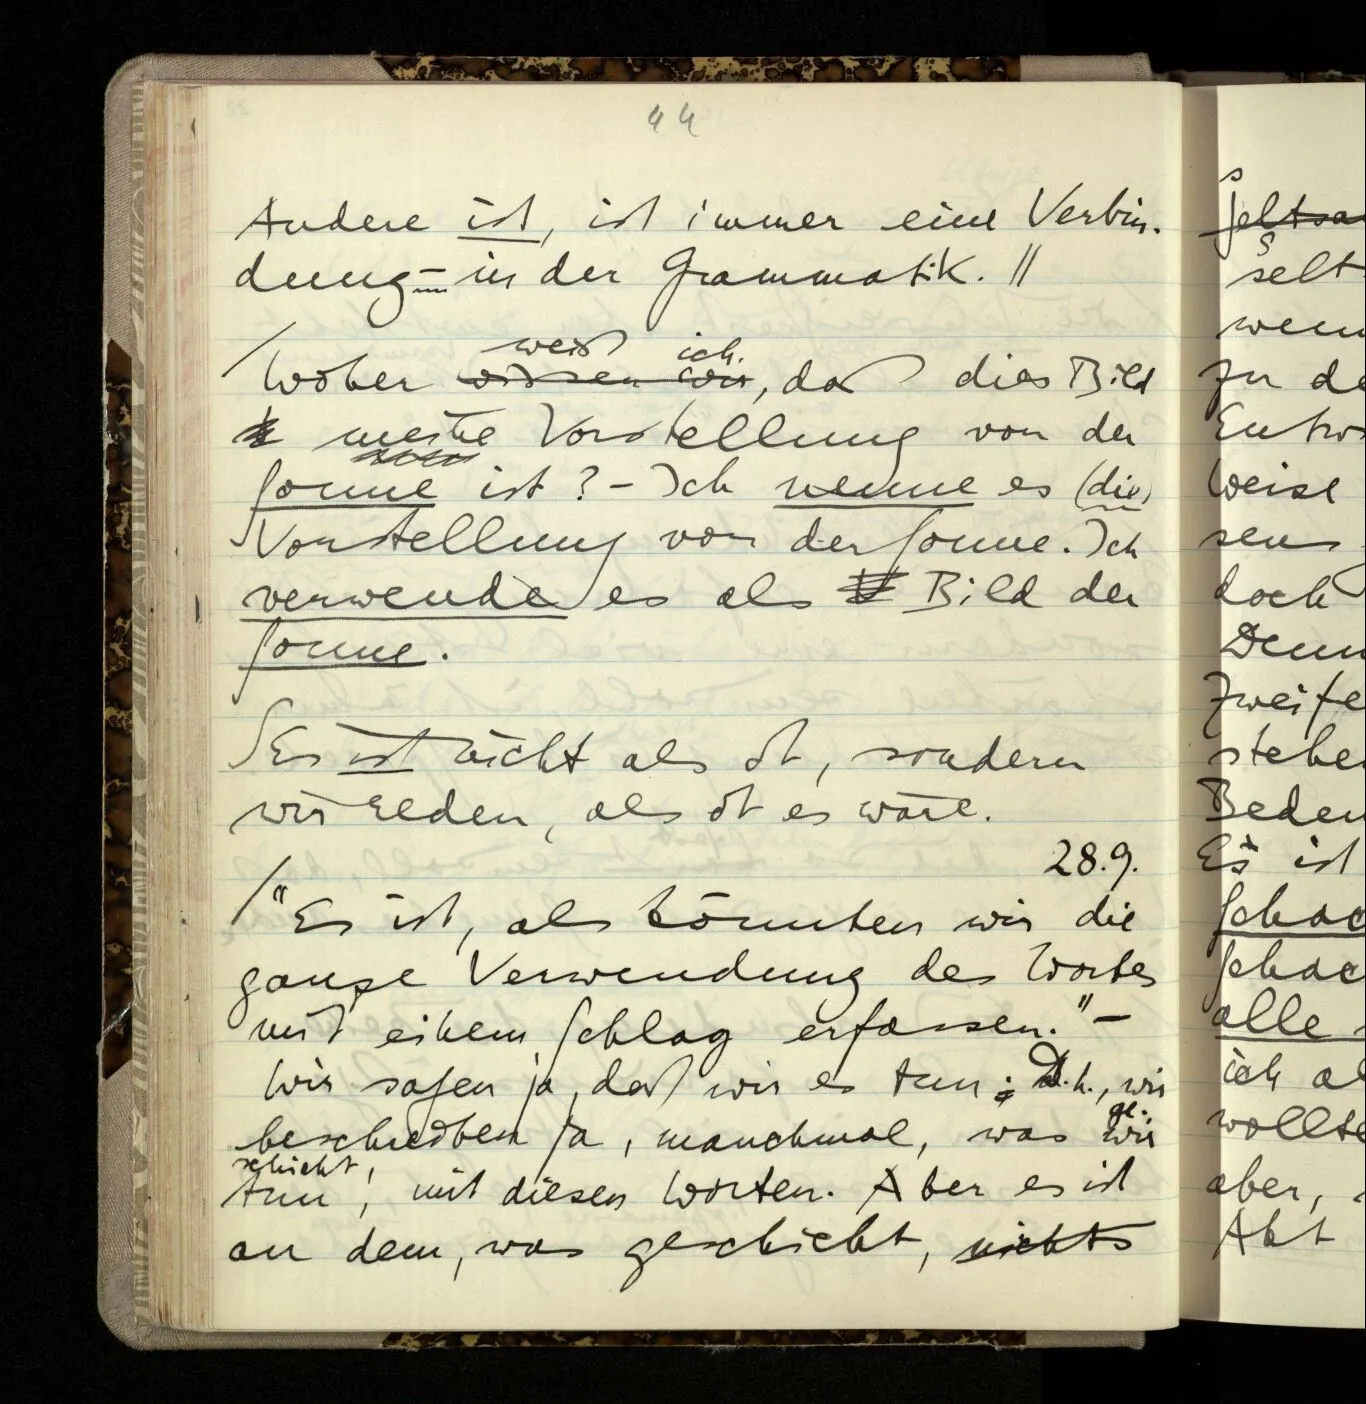 44
Andere ist, ist immer eine Verbin-
dung – in der Grammatik. ||
weiß ich
/ Woher wissen wir, daß dies Bild
meine Vorstellung von der
Sonne ist? – Ich nenne es (die)
Vorstellung von der Sonne. Ich
verwende es als Bild der
Sonne.
Es ist nicht als ob, sondern
wir reden, als ob es wäre.
28.9.
/ "Es ist, als könnten wir die
ganze Verwendung des Wortes
mit einem Schlag erfassen." –
Wir sagen ja, daß wir es tun; D.h., wir
ge-
beschreiben ja, manchmal, was wir
schieht,
tun, mit diesen Worten. Aber es ist
an dem, was geschieht, nichts
s
seltsa
selt
wenn
zu de
Entw
Weise
sen
doch
Denn
Zweife
stehe
Beden
Es ist
Schac
Schac
alle
ich al
wollte
aber,
Akt